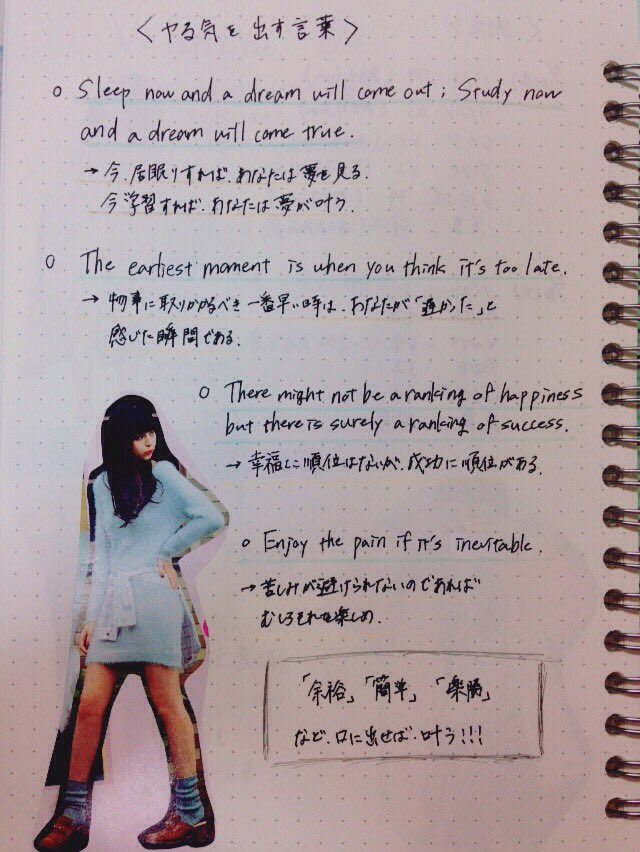 ＜ヤる気を出す言葉＞
○ Sleep now and a dream will come out ; Study now
and a dream will come true.
→ 今、居眠りすれば、あなたは夢を見る、
今学習すれば、あなたは夢が叶う、
○ The earliest moment is when you think it's too late.
→ 物事に取りかかるべき一番早い時は、あなたが「遅かった」と
感じた瞬間である、
○ There might not be a ranking of happiness
but there is surely a ranking of success.
→ 幸福に順位はないが、成功に順位がある、
○ Enjoy the pain if it's inevitable.
→ 苦しみが避けられないのであれば
むしろそれを楽しめ、
「余裕」「簡単」「楽勝」
など、口に出せば、叶う!!!